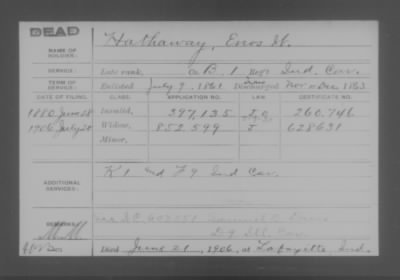 DEAD
NAME OF SOLDIER: Hathaway, Enos W.
SERVICE: Late rank, Co. B, 1 Reg't Ind. Cav.
TERM OF SERVICE: Enlisted July 9, 1861 Discharged Nov or Dec, 1863
DATE OF FILING. CLASS. APPLICATION NO. LAW. CERTIFICATE NO.
1880 June 28 Invalid, 397,135 260,746
1906 July 20 Widow, 852,599 628631
Minor,
ADDITIONAL SERVICES: K 1 and F 9 Ind Cav.
REMARKS: Samuel
Ill. Cav.
Died June 21, 1906, at Lafayette Ind.